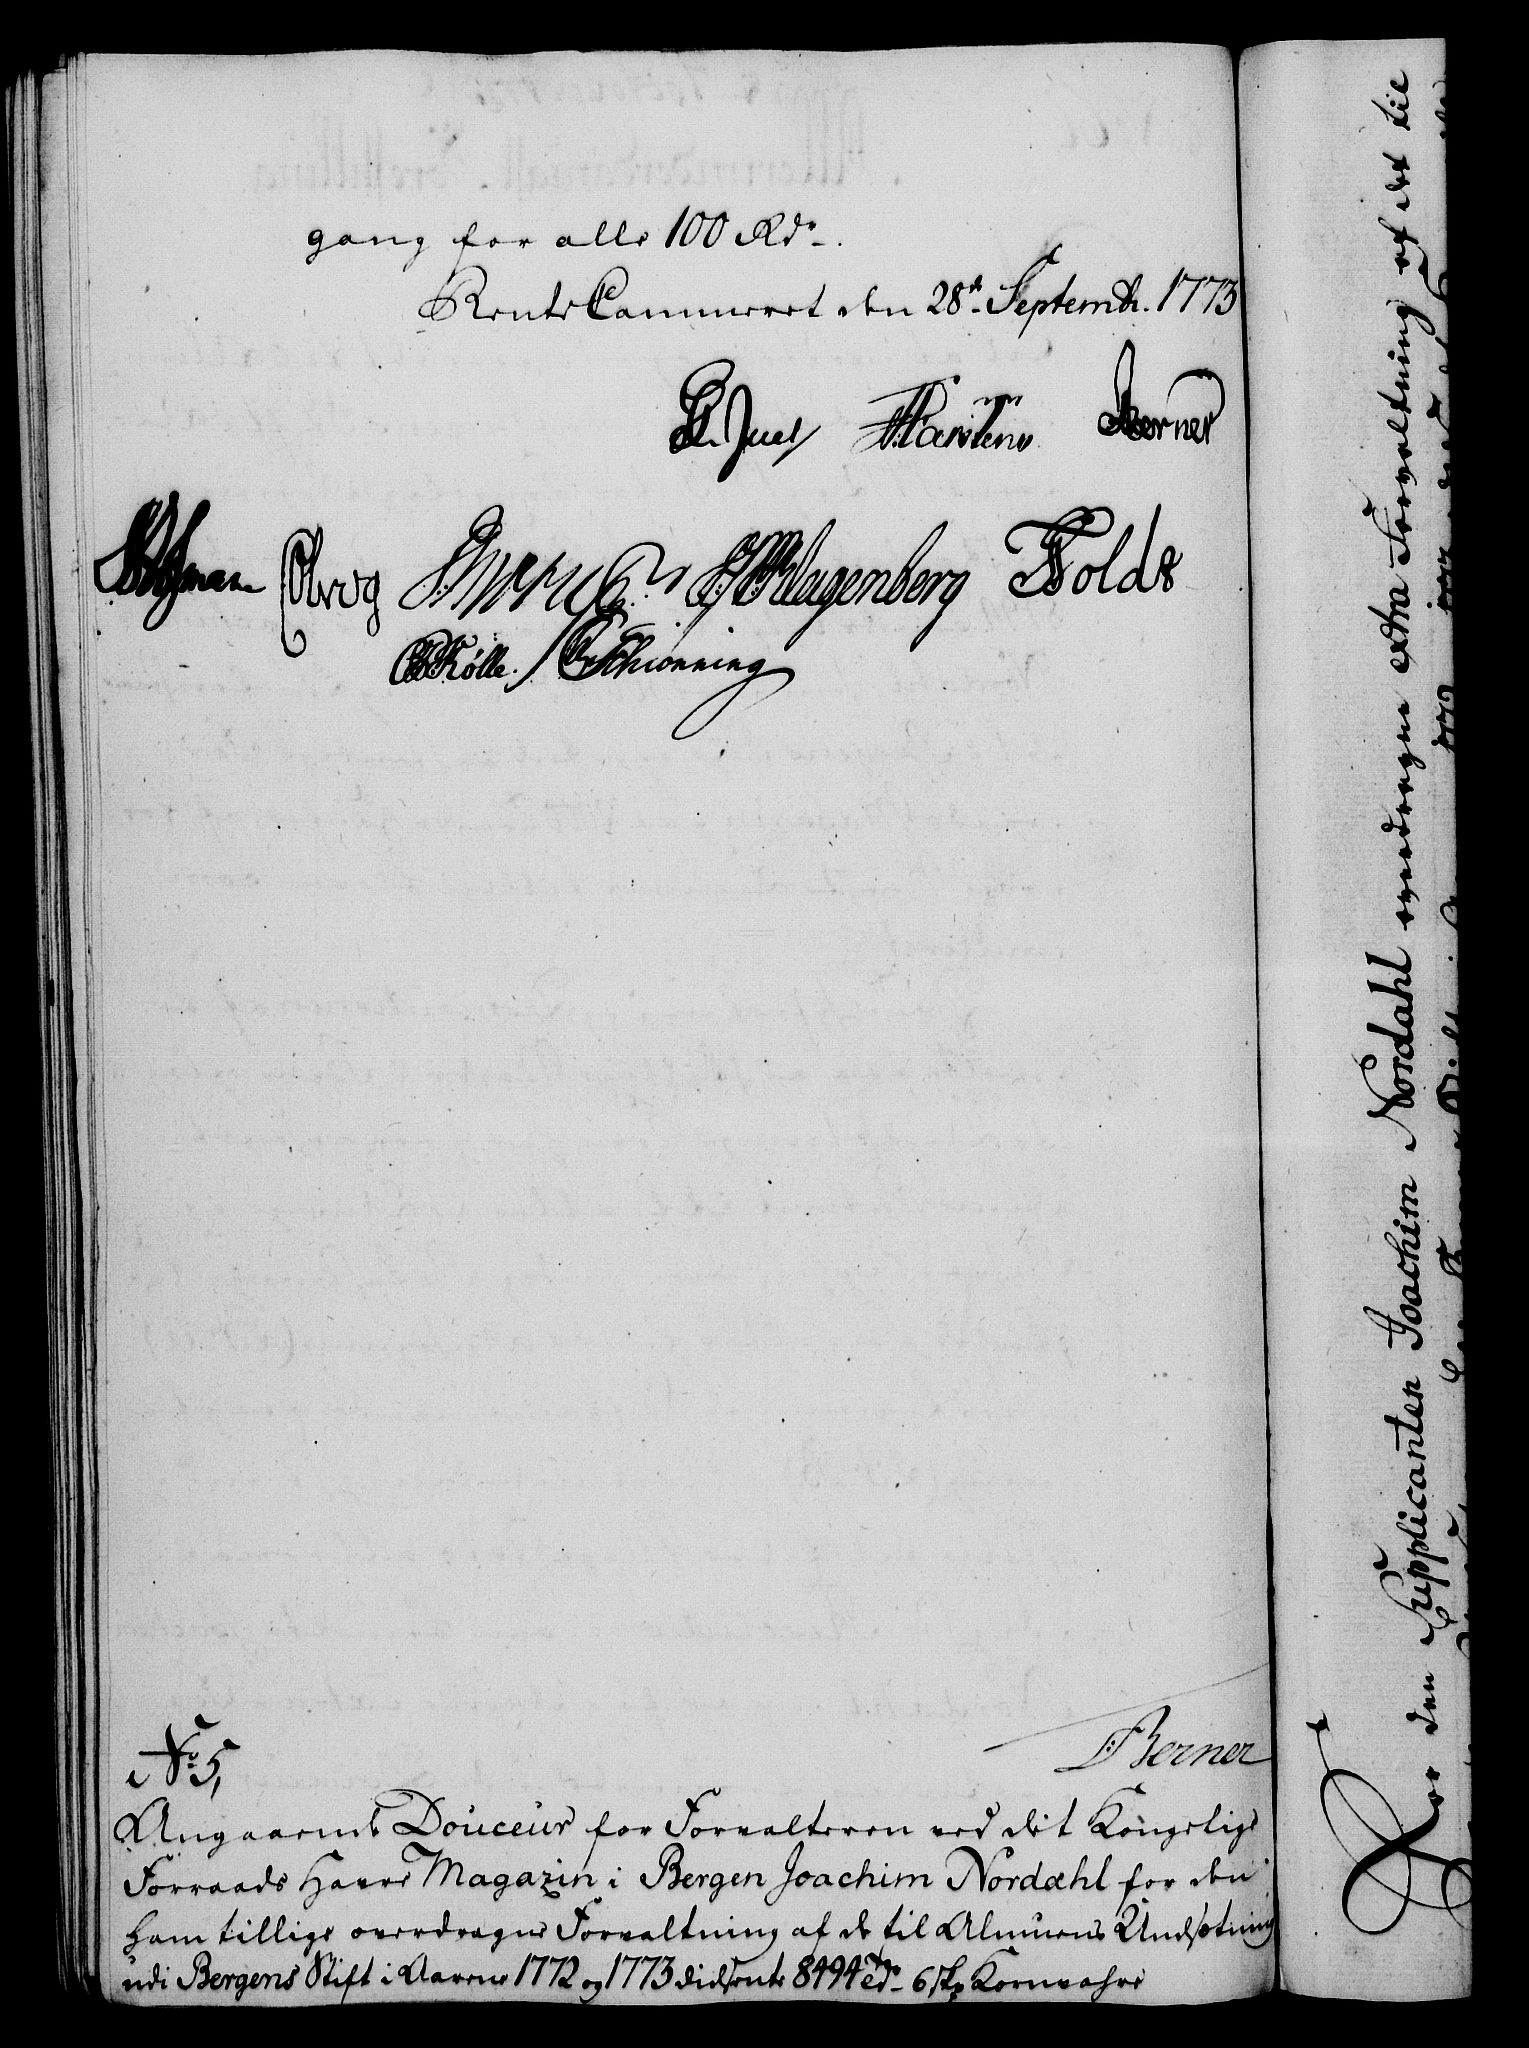 gang for alle 100 Rdr.
RenteCammeret den 28de Septembr. 1773
H. Juel Martens Berner
Olrog Wagenberg Holde
Kölle. Schiønning
Berner
No. 5,
Angaaende Douceur for Forvalteren ved det Kongelige
Forraads Havre Magazin i Bergen Joachim Nordahl for den
ham tillige overdragne Forvaltning af de til Almuens Undsætning
udi Bergens Stift i Aarene 1772 og 1773 didsente 8494 Tdr. 6 skp Kornvahre
For den Supplicanten Joachim Nordahl overdragne extra Forvaltning af det til